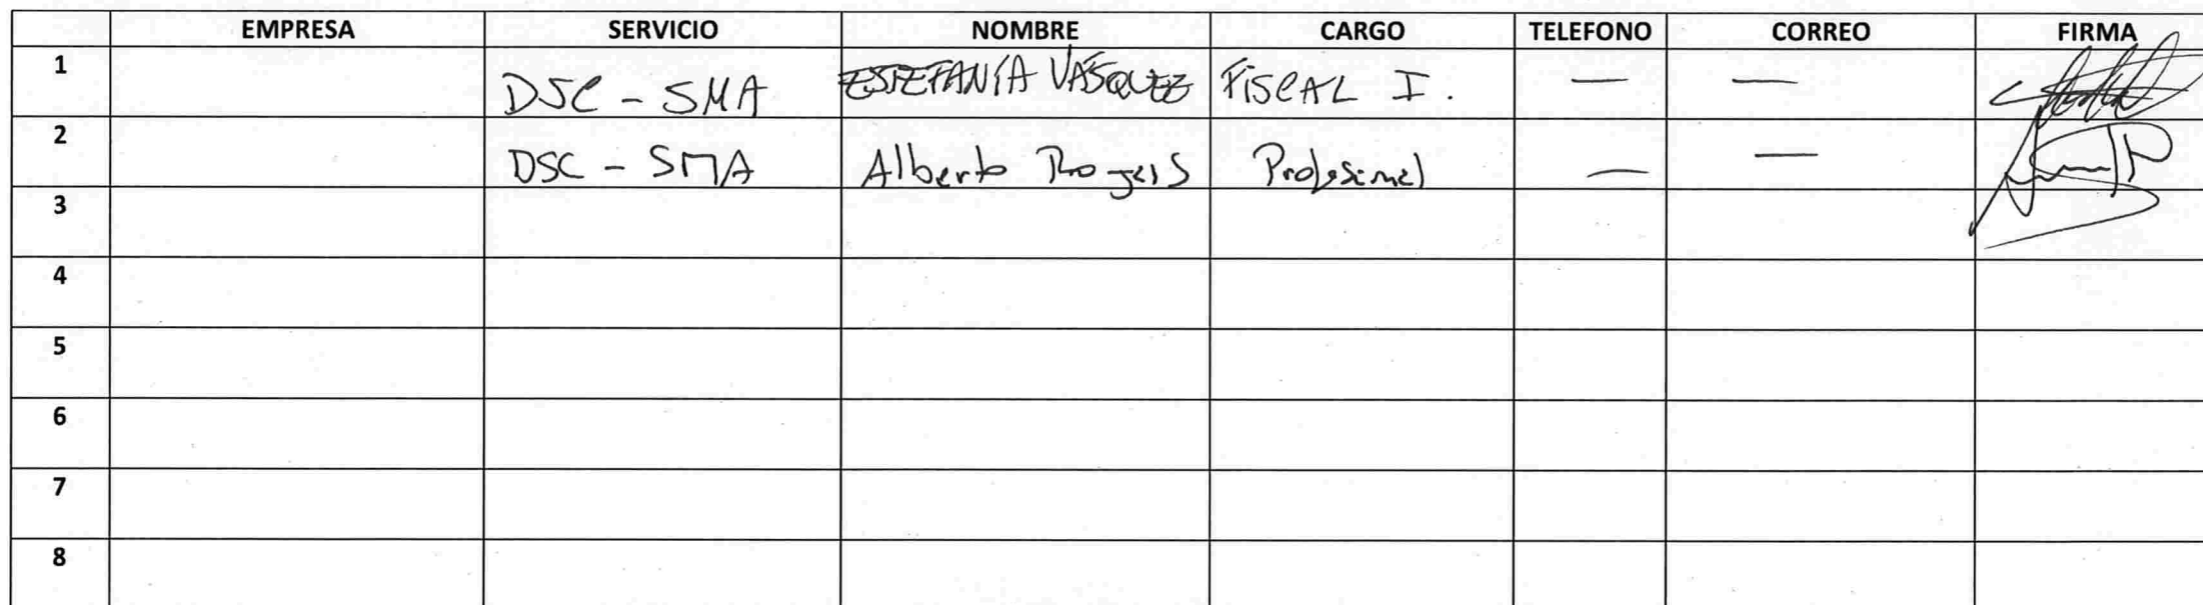 EMPRESA SERVICIO NOMBRE CARGO TELEFONO CORREO FIRMA
1 DSC - SMA ESTEFANÍA VÁSQUEZ FISCAL I. — —
2 DSC - SMA Alberto Rojas Profesional — —
3
4
5
6
7
8